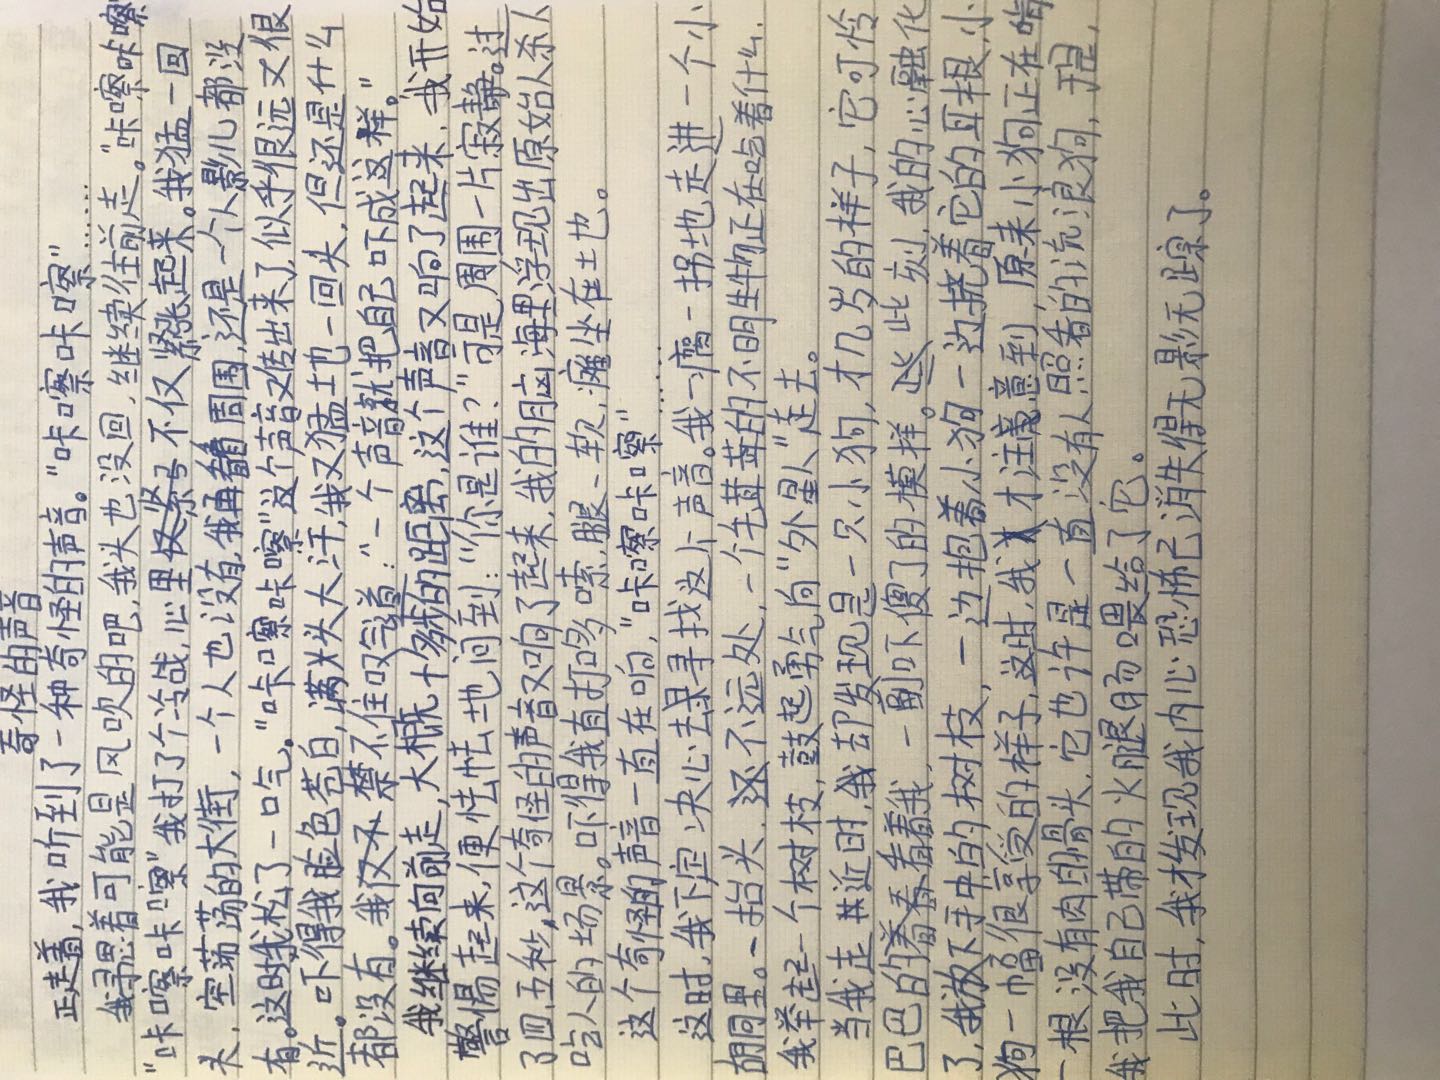 奇怪的声音
正走着，我听到了一种奇怪的声音。“咔嚓咔嚓”……
我寻思着可能是风吹的吧，我头也没回，继续往前走。“咔嚓咔嚓”
“咔嚓咔嚓”我打了个冷战，心里紧张起来。我猛一回
头，空荡荡的大街，一个人也没有，我再看周围，还是一个人影儿都没
有。这时我松了一口气。“咔嚓咔嚓”这个声音又传出来了，似乎很远又很
近。吓得我脸色苍白，满头大汗，我又猛地一回头，但还是什么
都没有。我禁不住叹气道：“一个声音就把自己吓成这样。”
我继续向前走，大概十多步的距离，这个声音又响了起来，我开始
警惕起来，便怯怯地问到：“你是谁？”可是周围一片寂静。过
了四，五秒，这个奇怪的声音又响了起来，我的脑海里浮现出原始人杀
吃人的场景。吓得我直打哆嗦，腿一软，瘫坐在地。
这个奇怪的声音一直在响，“咔嚓咔嚓”……
这时，我下定决心去寻找这个声音。我一瘸一拐地走进一个小
胡同里。一抬头，还不远处，一个毛茸茸的不明生物正在吃着什么.
我举起一个树枝，鼓起勇气向“外星人”走去。
当我走近时，我却发现是一只小狗，才几岁的样子，它可怜
巴巴的看着我，一副吓傻了的模样。此刻，我的心融化
了，我放下手中的树枝，一边抱着小狗一边挠着它的耳根，小
狗一幅很享受的样子，这时，我才注意到，原来小狗正在啃
一根没有肉的骨头，它也许是一直没有人照看的流浪狗，于是，
我把我自己带的火腿肠喂给了它。
此时，我才发现我内心恐怖已消失得无影无踪了。